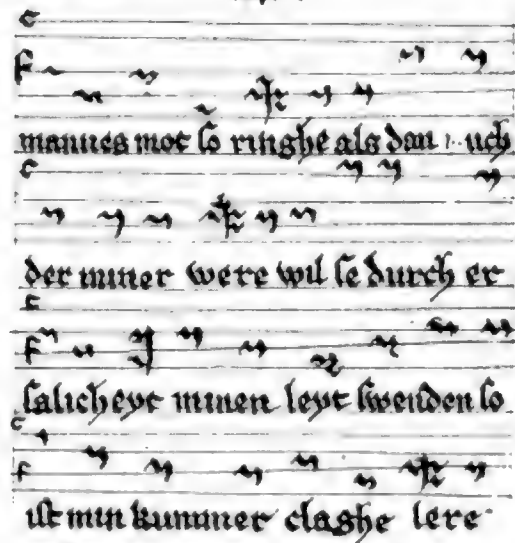 mannes mot so ringhe als dau uch
der miner were wil se durch er
salicheyt minen leyt swenden so
ist min kummer claghe lere